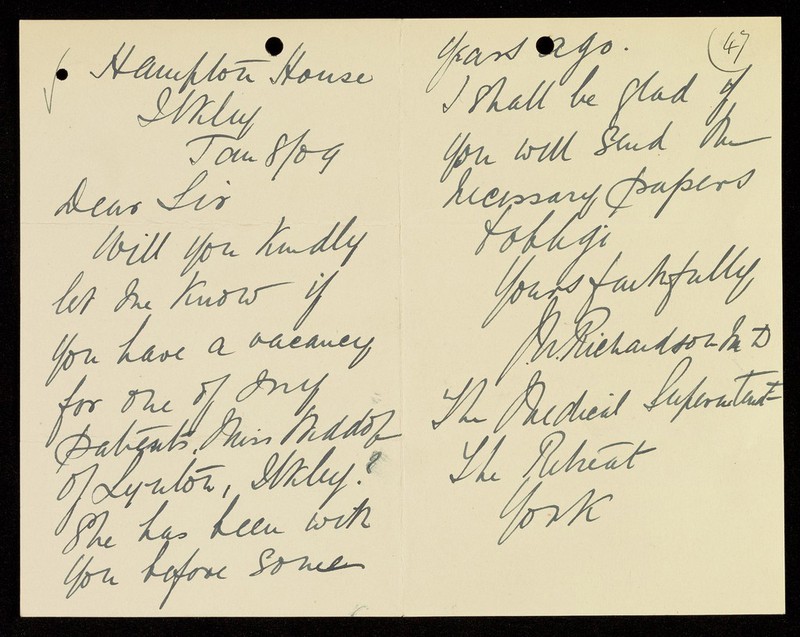 Hampton House
Ilkley
Jan 8/09
Dear Sir
Will you kindly
let me know if
you have a vacancy
for one of my
patients, Miss
of Lynton, Ilkley?
She has been with
you before some
47
years ago.
I shall be glad if
you will send the
necessary papers
& oblige
Yours faithfully
Richardson M D
The Medical Superintendent
The Retreat
York